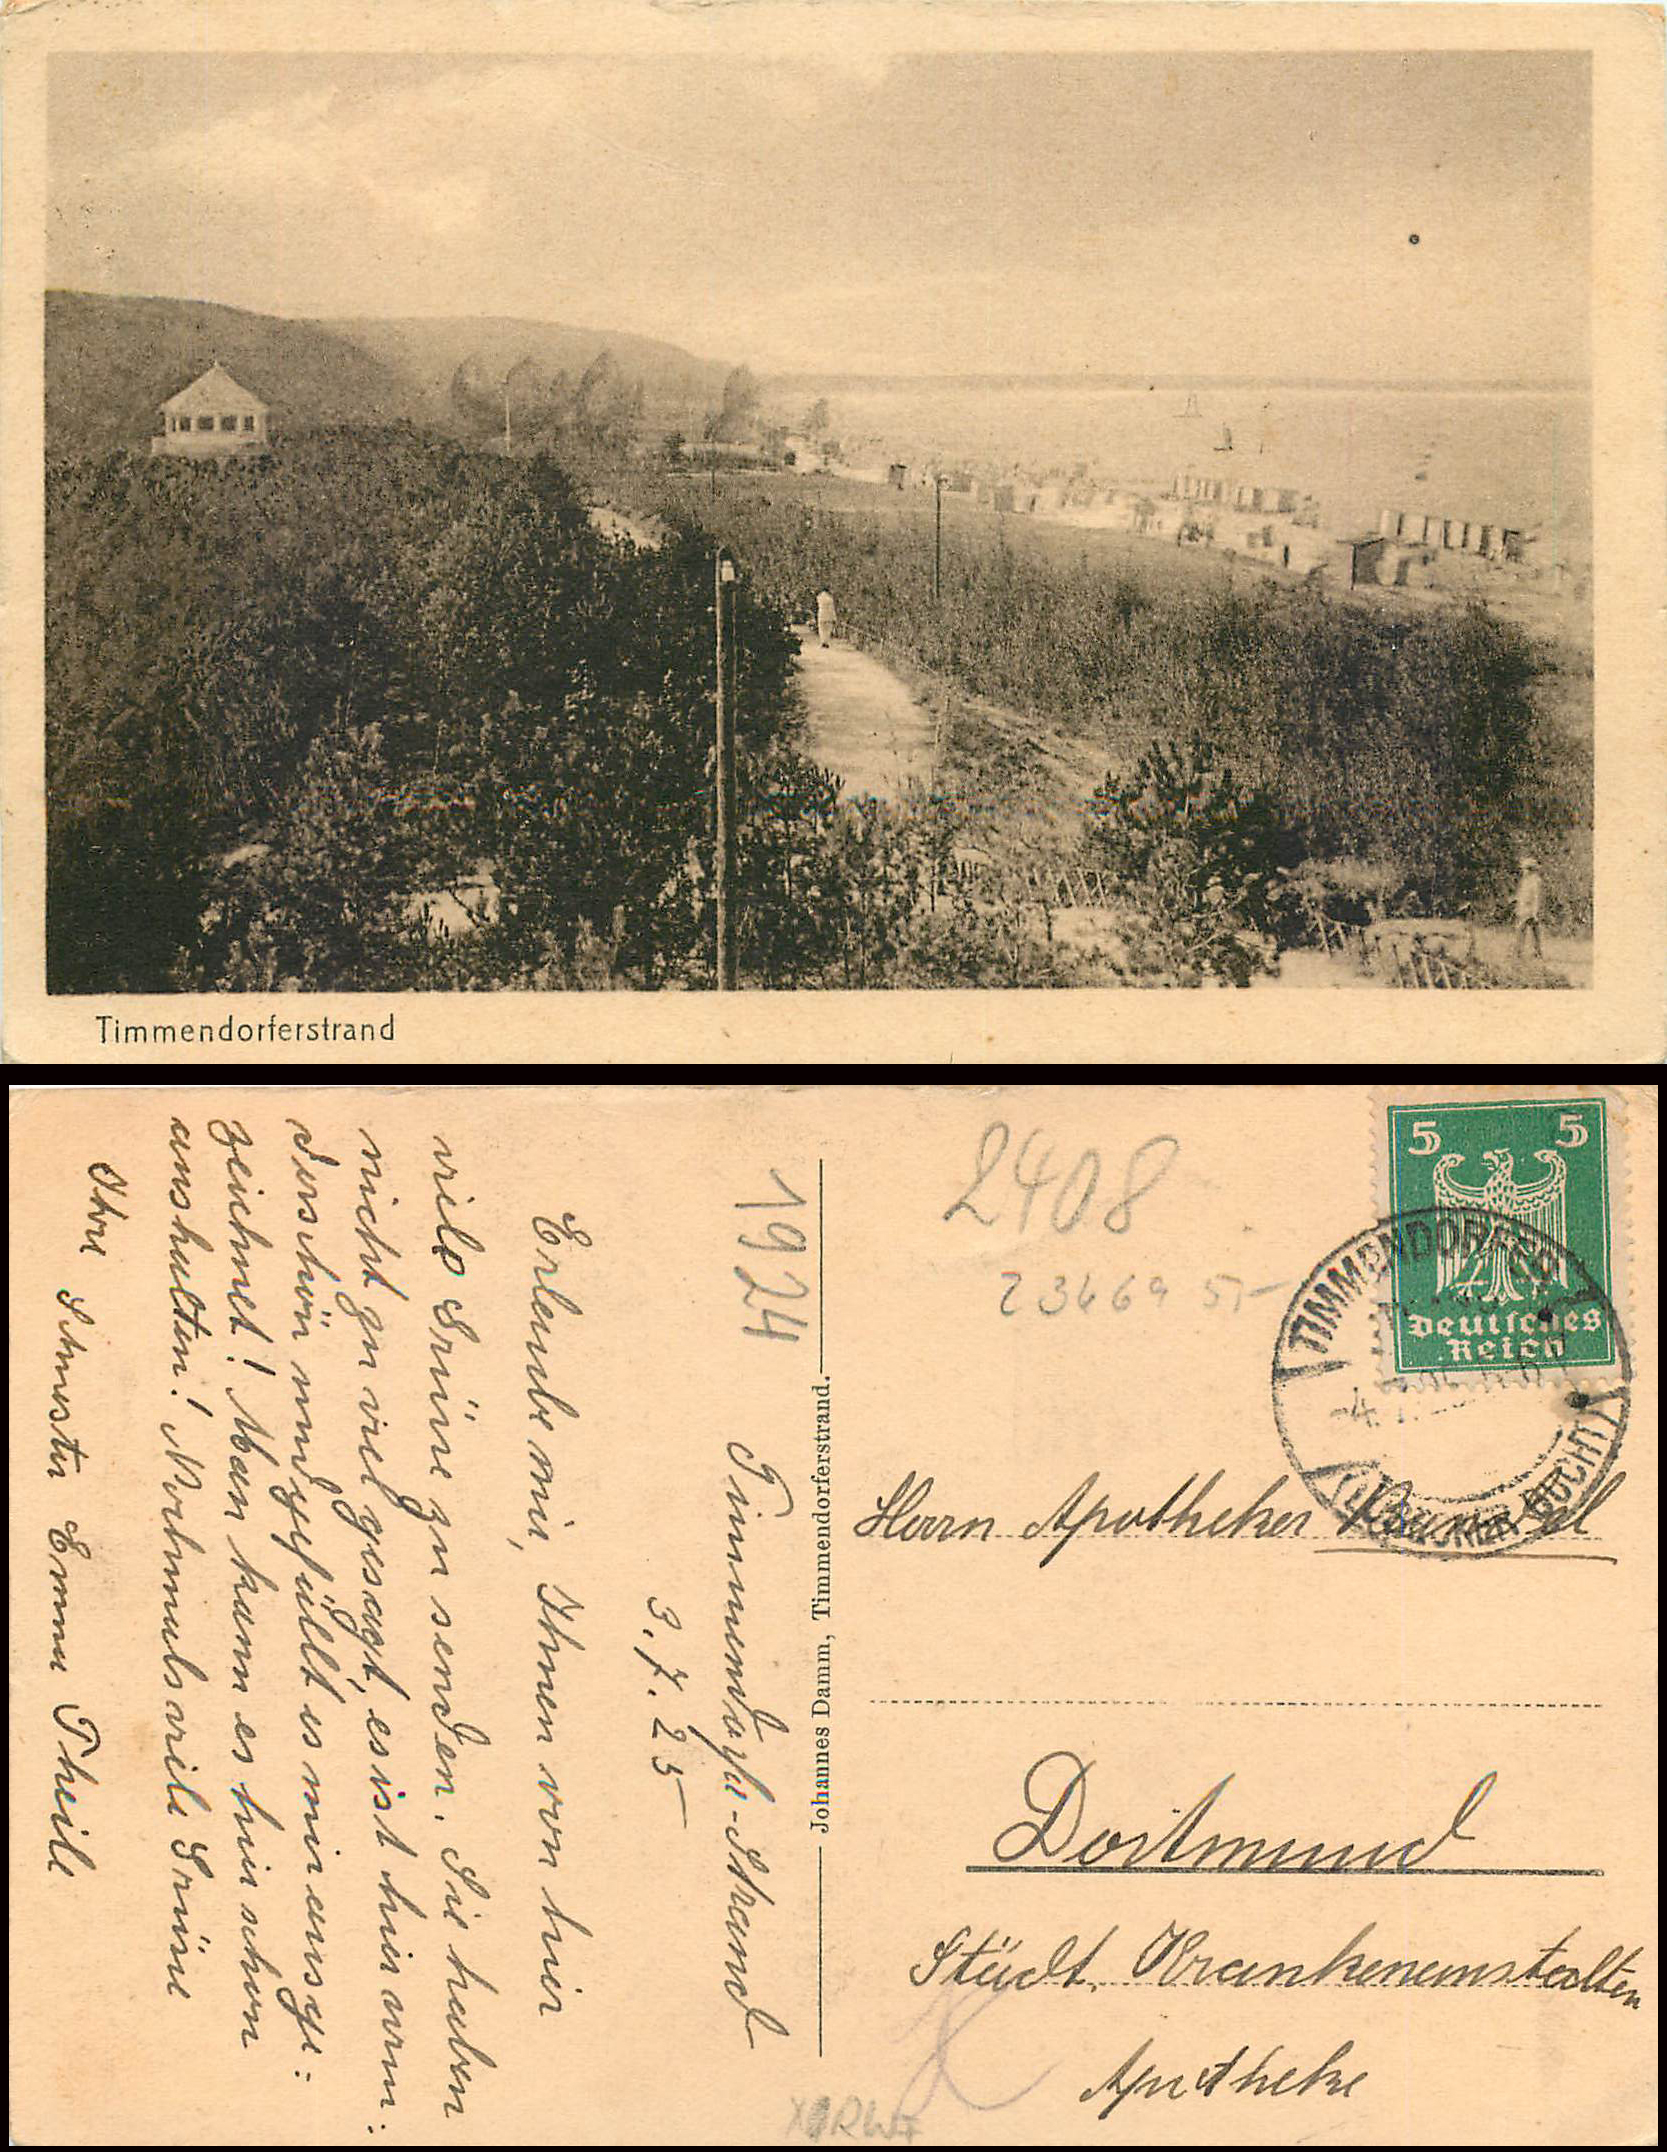 Timmendorferstrand
2408
Z 3469 5,-
1924
5 5
Deutsches
Reich
TIMMENDORFER
LÜBECKER BUCHT
-4. 7. 25
Johannes Damm, Timmendorferstrand.
Herrn Apotheker
Dortmund
Städt. Krankenanstalten
Apotheke
Timmendorfer-Strand
3. 7. 25
Erlaube mir, Ihnen von hier
viele Grüße zu senden. Sie haben
nicht zu viel gesagt, es ist hier wun:
derschön und gefällt es mir ausge:
zeichnet! Man kann es hier schon
aushalten! Nochmals viele Grüße
Ihre Schwester Emma Theile